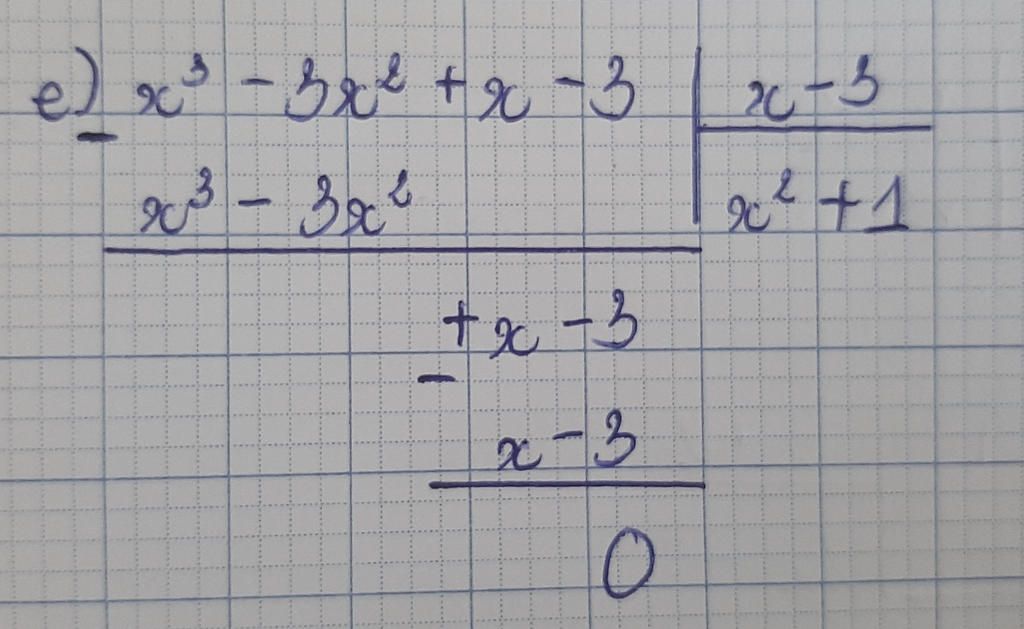 e) x³ - 3x² + x - 3 | x - 3
- x³ - 3x² | x² + 1
+ x - 3
-
x - 3
0